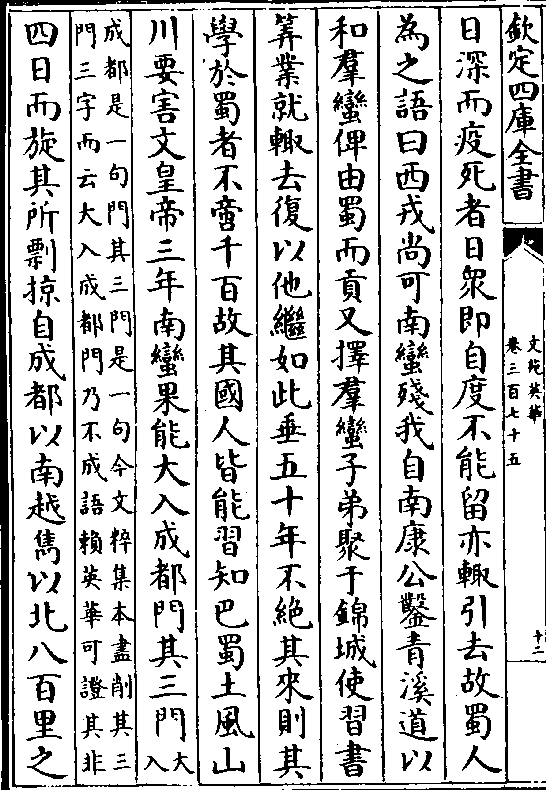 欽定四庫全書
文苑英華
卷三百七十五
十二
日深而疫死者日衆即自度不能留亦輙引去故蜀人
為之語曰西戎尚可南蠻殘我自南康公鑿青溪道以
和羣蠻俾由蜀而貢又擇羣蠻子弟聚于錦城使習書
筭業就輙去復以他繼如此垂五十年不絶其來則其
學於蜀者不啻千百故其國人皆能習知巴蜀土風山
川要害文皇帝三年南蠻果能大入成都門其三門大入
成都是一句門其三門是一句今文粹集本盡削其三
門三字而云大入成都門乃不成語賴英華可證其非
四日而旋其所剽掠自成都以南越嶲以北八百里之